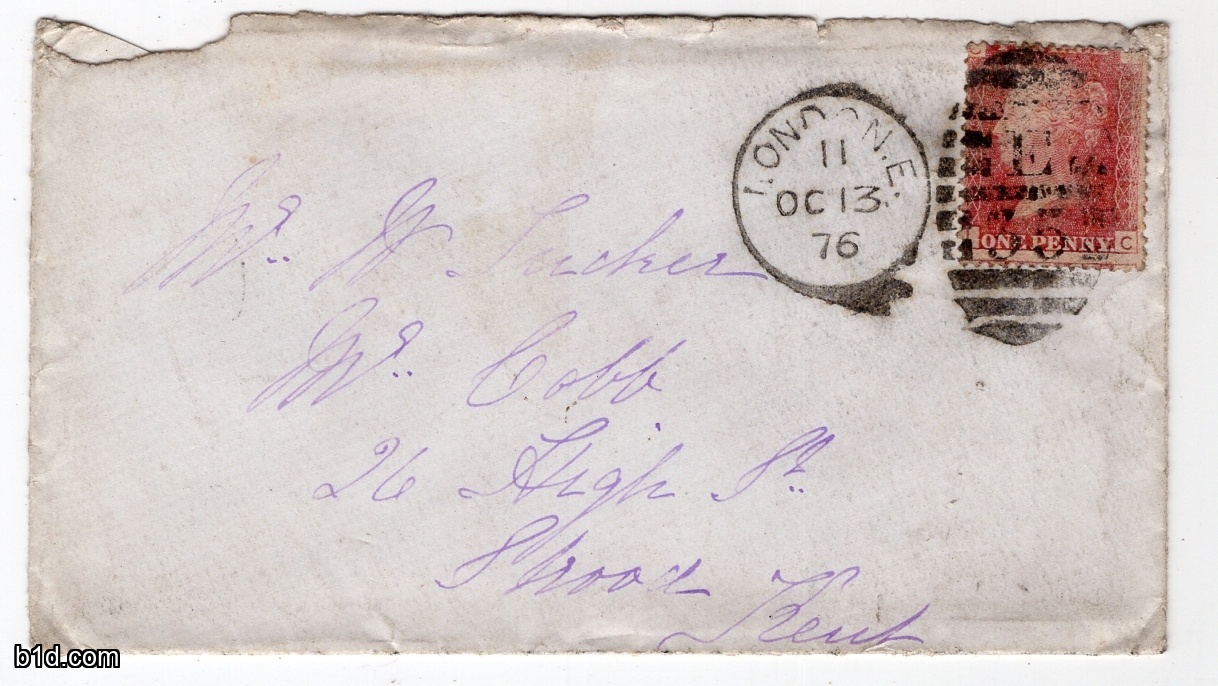 LONDON.E.
11
OC 13
76
E
ONE PENNY
C
Mr. W Tucker
Mr. Cobb
26 High St.
Strood
Kent
b1d.com